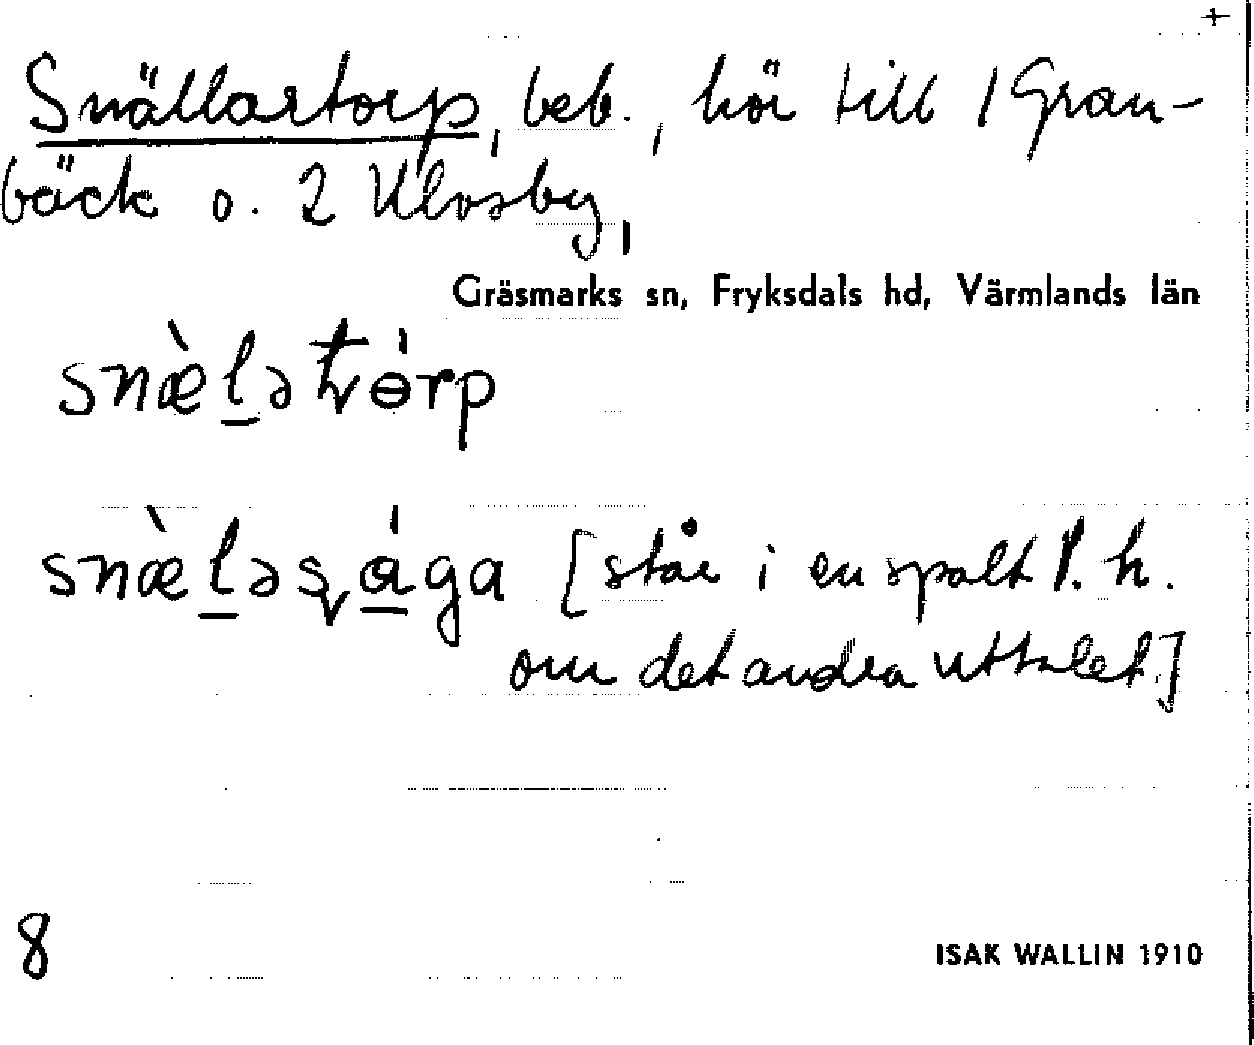 +
Snällartorp, beb., hör till 1 Gran-
bäck o. 2 Klosby,
Gräsmarks sn, Fryksdals hd, Värmlands län
snæ̀l̠ətɵ́rp
snæ̀l̠əsá̠ga [står i en spalt f. h.
om det andra uttalet.]
8
ISAK WALLIN 1910